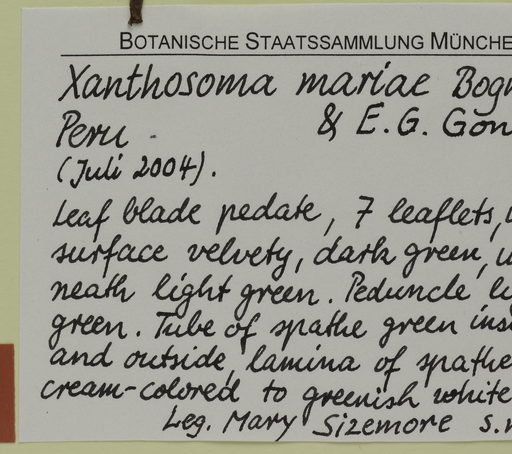 BOTANISCHE STAATSSAMMLUNG MÜNCHE
Xanthosoma mariae Bog
Peru & E.G. Gon
(Juli 2004).
Leaf blade pedate, 7 leaflets,
surface velvety, dark green, u
neath light green. Peduncle li
green. Tube of spathe green ins
and outside, lamina of spathe
cream-colored to greenish white
Leg. Mary Sizemore s.n